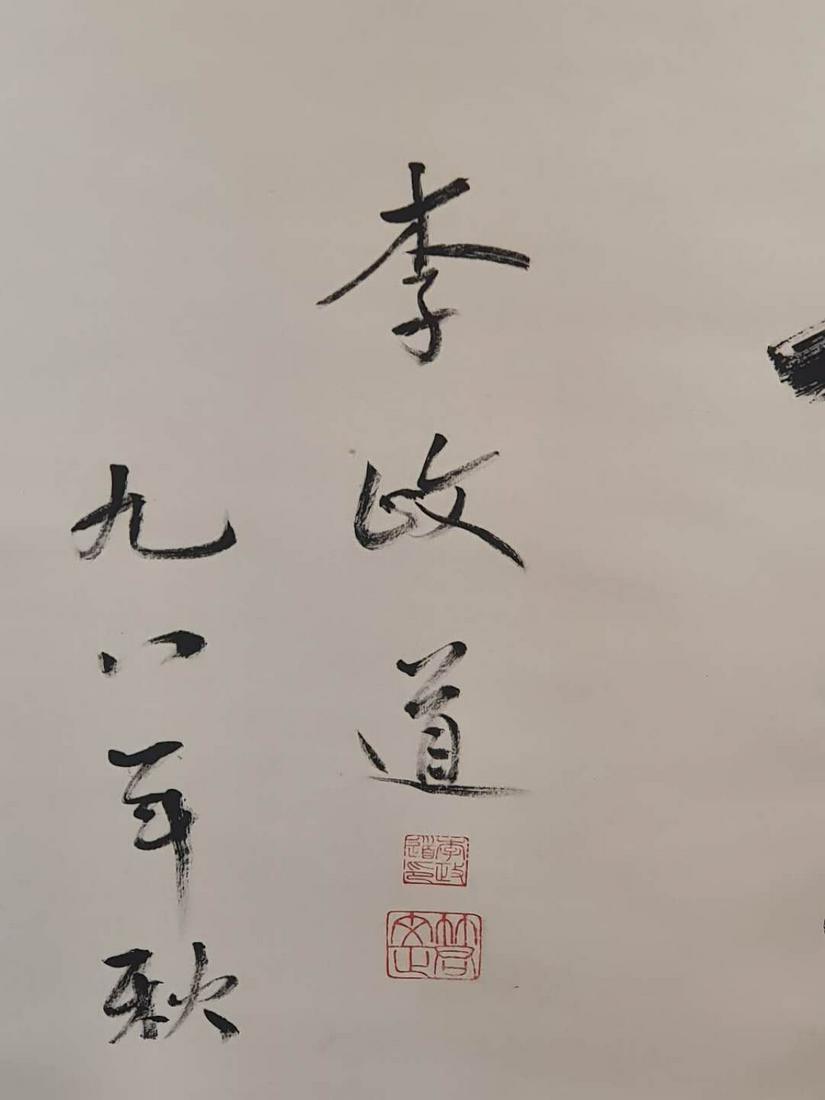 李政道
九八年秋
李政道印